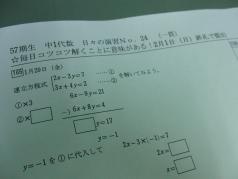 57期生 中1代数 日々の演習No. 24 (一貫)
☆毎日コツコツ解くことに意味がある!2月1日(月)朝礼で提出
165 1月29日(金)
連立方程式 2x－3y=7 ……① を解いてみよう。
3x+4y=2 ……②
①×3 6x－9y=21
②× －) 6x+8y=4
y=17
y=－1
y=－1 を①に代入して 2x－3×(－1)=7
2x=
x=